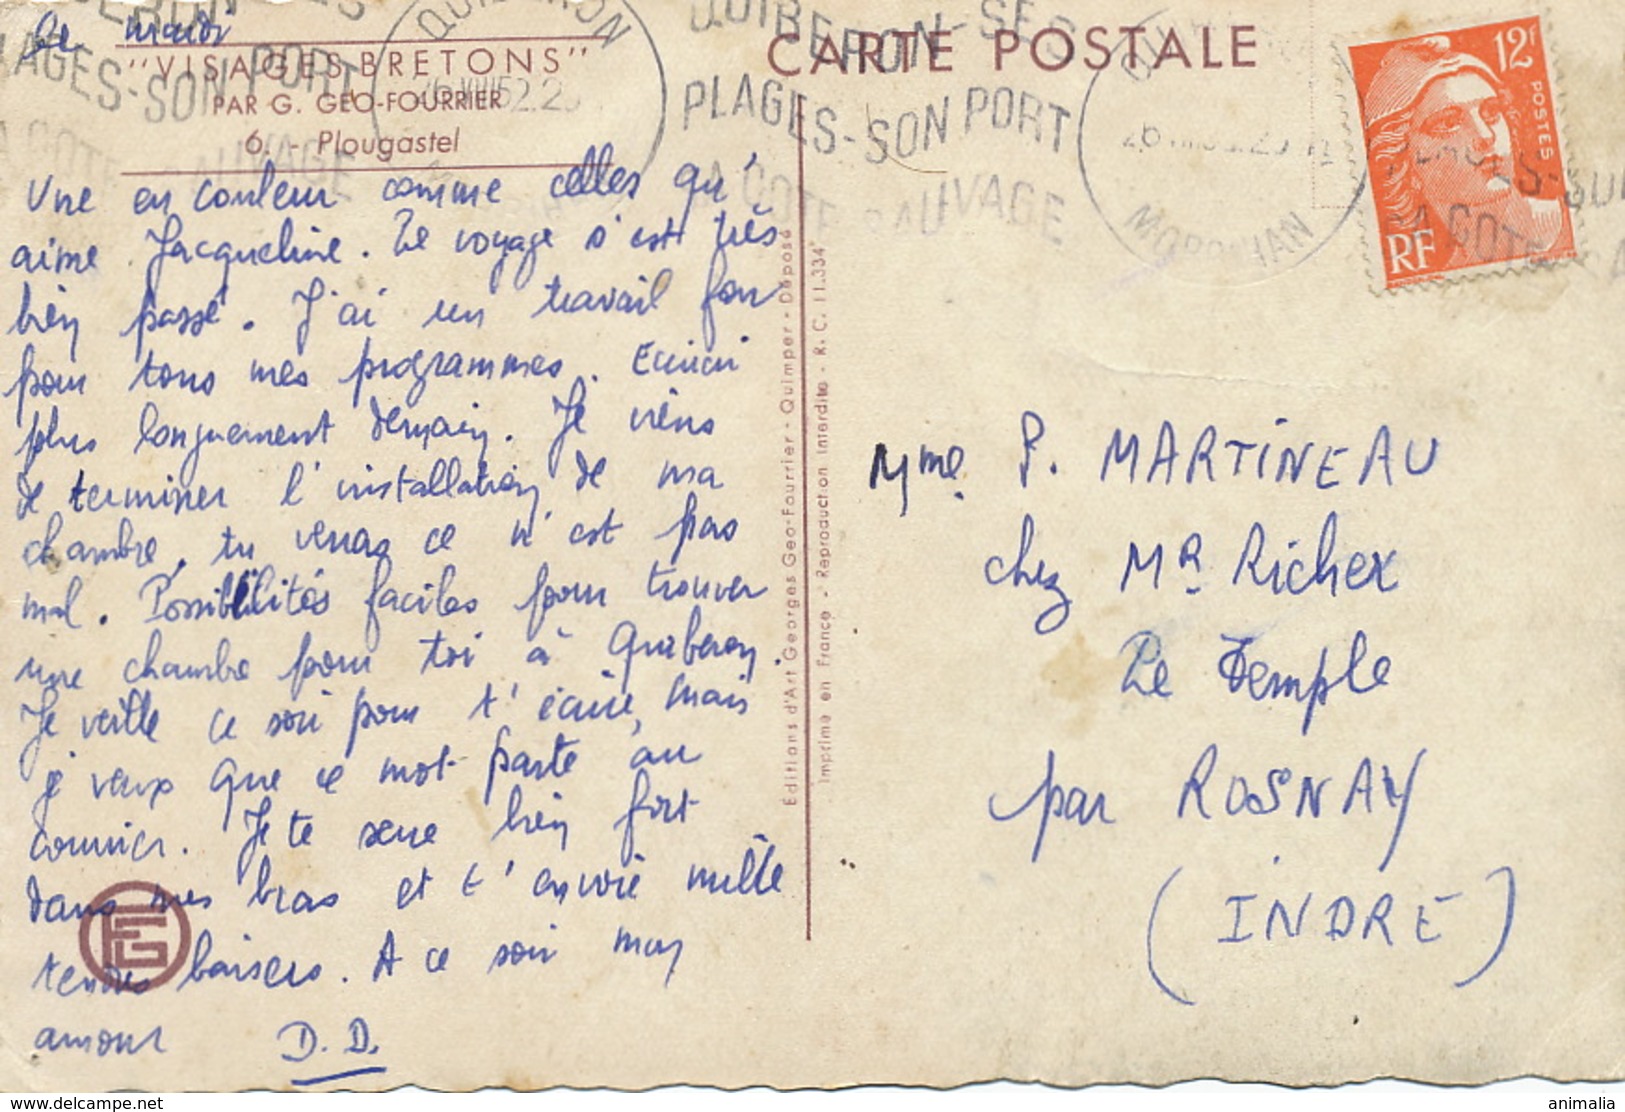 Le mardi
"VISAGES BRETONS"
PAR G. GEO-FOURRIER
6. - Plougastel
Une en couleur comme celles qu'
aime Jacqueline. Le voyage s'est très
bien passé. J'ai un travail fou
pour tous mes programmes. Ecrirai
plus longuement demain. Je viens
de terminer l'installation de ma
chambre, tu verras ce n'est pas
mal. Possibilités faciles pour trouver
une chambre pour toi à Quiberon.
Je veille ce soir pour t'écrire, mais
je veux que ce mot parte au
courrier. Je te serre bien fort
dans mes bras et t'envoie mille
tendres baisers. A ce soir mon
amour D.D.
Editions d'Art Georges Geo-Fourrier - Quimper - Déposé
Imprimé en France - Reproduction Interdite - R. C. 11.334
CARTE POSTALE
QUIBERON-SES
PLAGES-SON PORT
LA COTE SAUVAGE
QUIBERON
MORBIHAN
12F
POSTES
RF
Mme P. MARTINEAU
chez Mr Richer
Le Temple
par ROSNAY
(INDRE)
www.delcampe.net
animalia